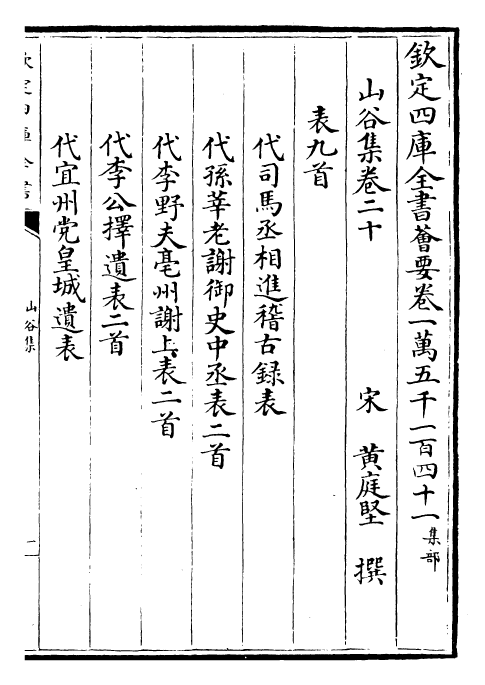 欽定四庫全書薈要卷一萬五千一百四十一集部
山谷集卷二十
宋 黄庭堅 撰
表九首
代司馬丞相進稽古録表
代孫莘老謝御史中丞表二首
代李野夫亳州謝上表二首
代李公擇遺表二首
代宜州党皇城遺表
山谷集